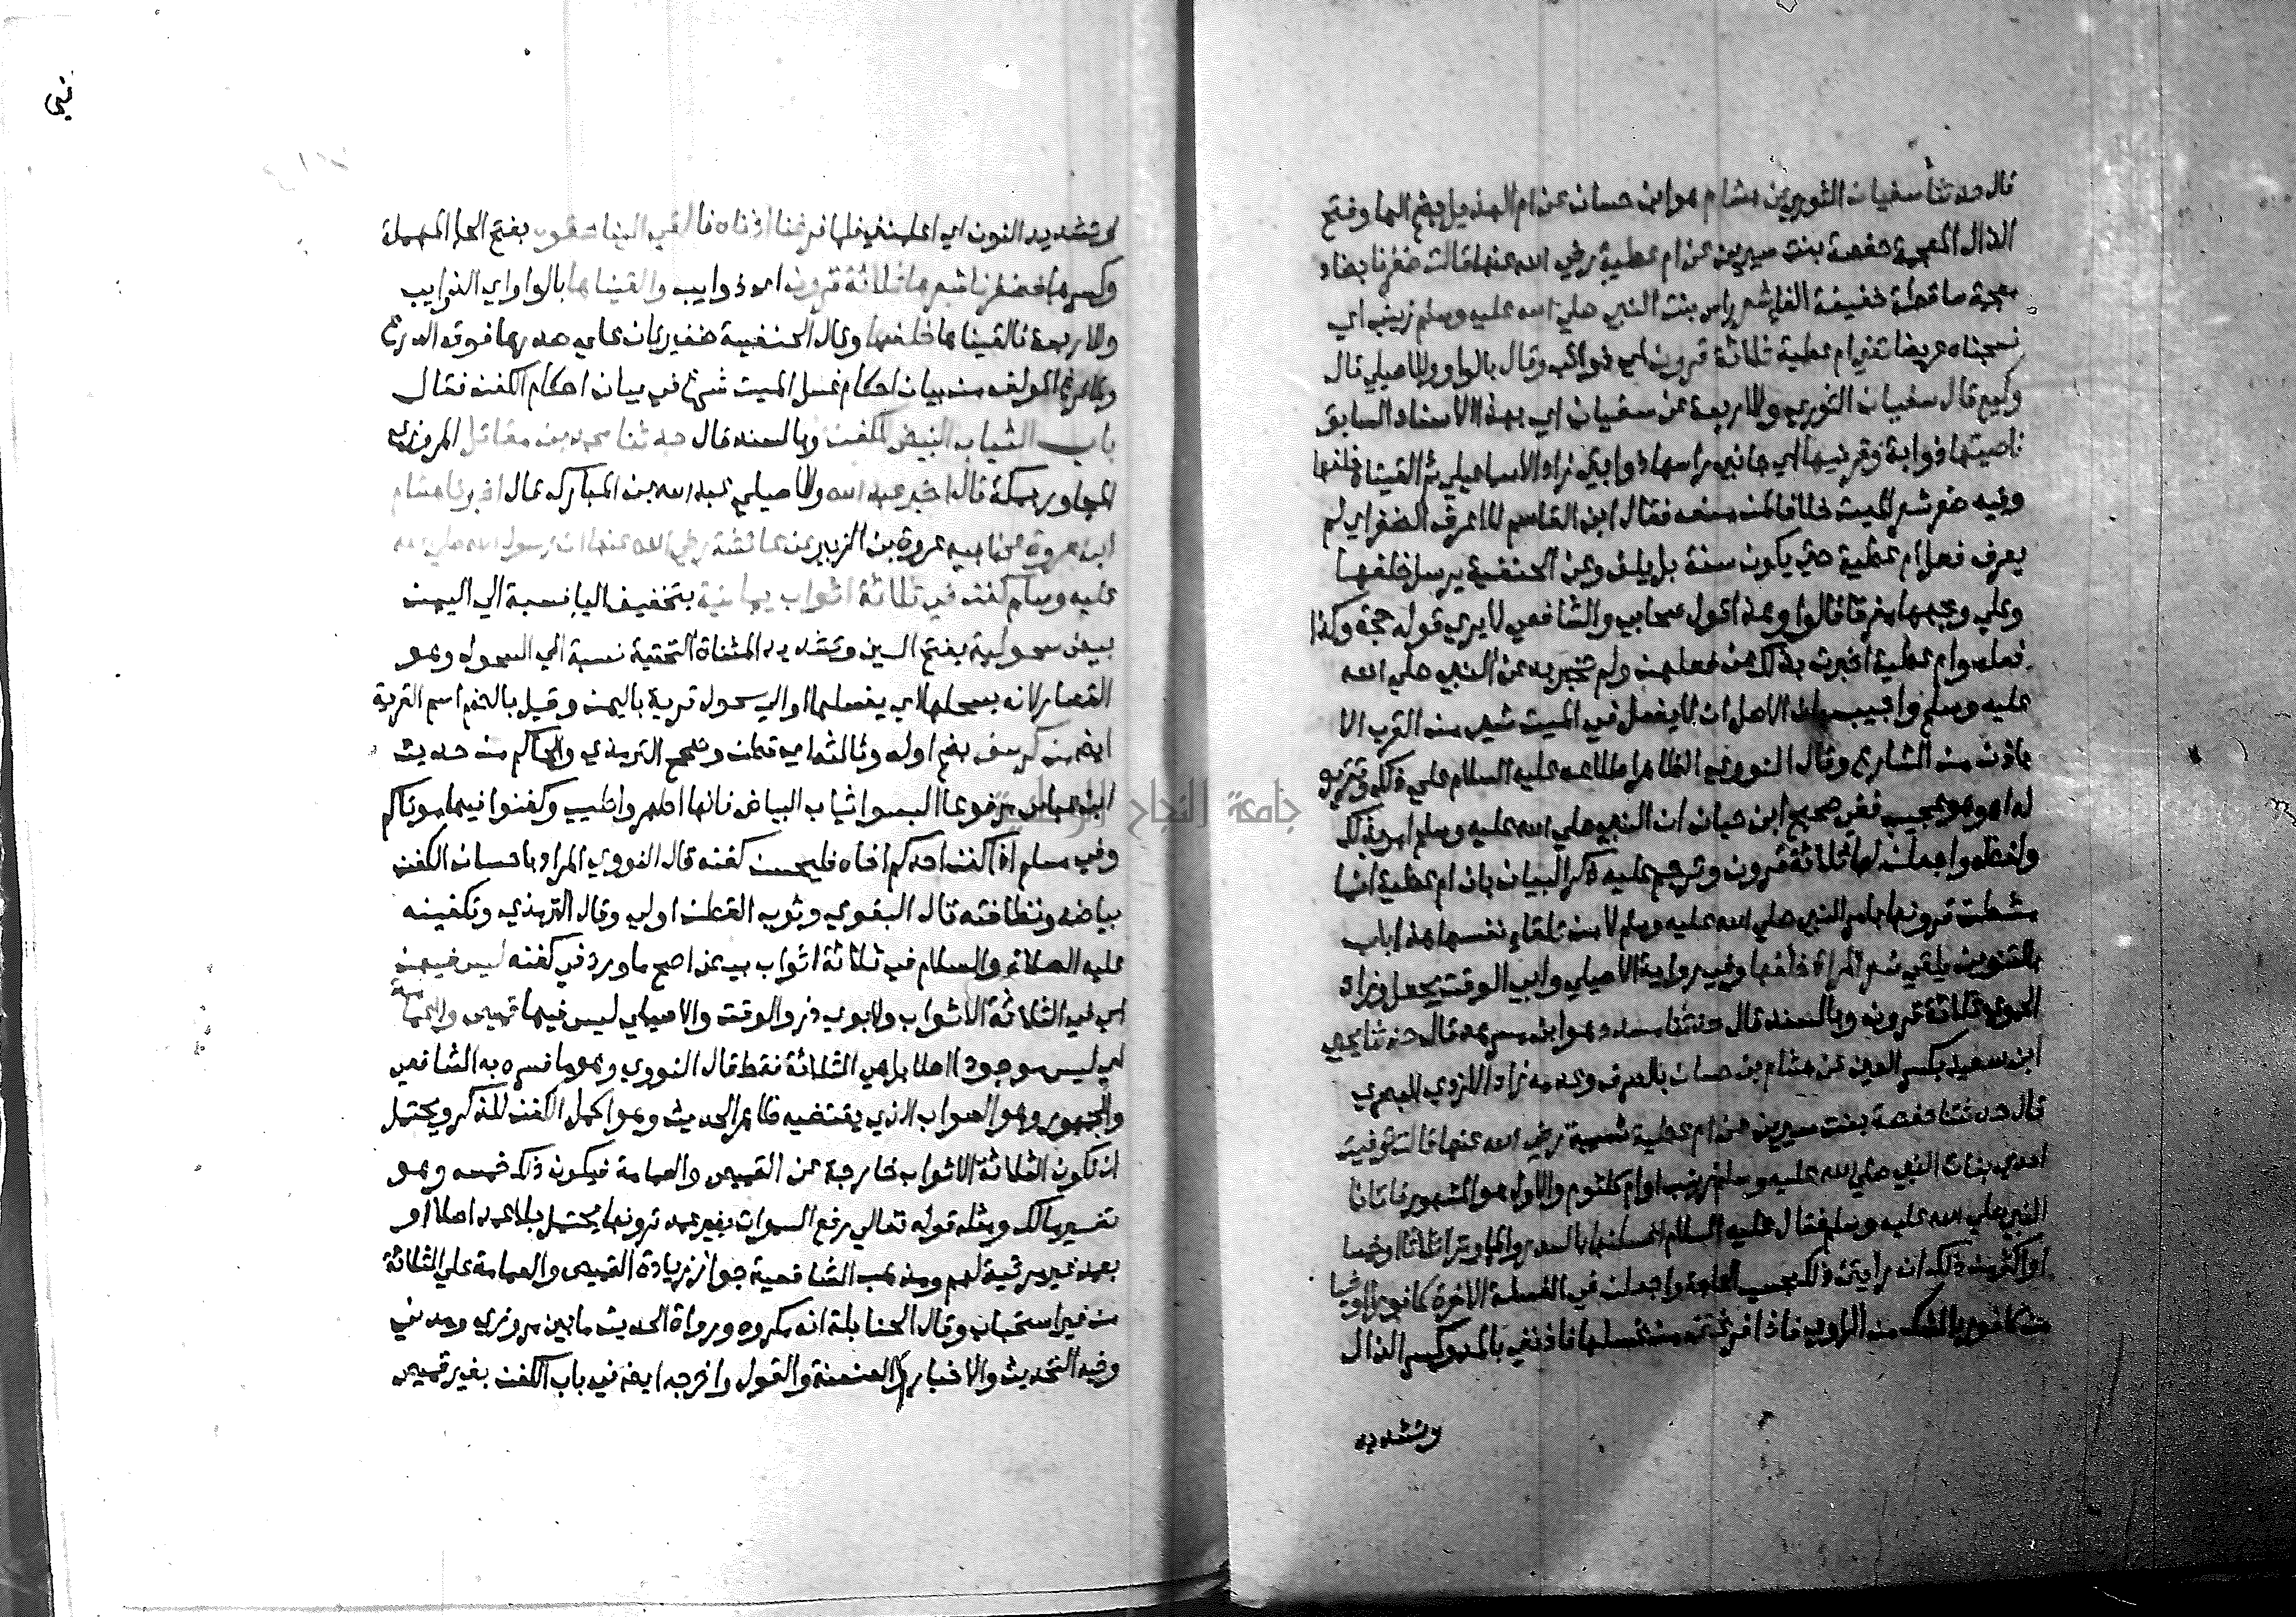 قال حدثنا سفيان الثوري عن هشام هو ابن حسان عن ام الهذيل بضم الها وفتح
الذال المعجمة حفصة بنت سيرين عن ام عطية رضي الله عنها قالت ضفرنا بضاد
معجمة ساقطة خفيفة الفا شعر راس بنت النبي صلي الله عليه وسلم زينب اي
نسجناه عريضا تعني ام عطية ثلاثة قرون اي ذوائب وقال بالواو وللاصيلي قال
وكيع قال سفيان الثوري وللاربعة عن سفيان اي بهذا الاسناد السابق
ناصيتها ذوابة وقرنيها اي جانبي راسها ذوابتين زاد الاسماعيلي ثم القيناه خلفها
وفيه ضفر شعر الميت خلافا لمن منعه فقال ابن القاسم لا اعرف الضفر اي لم
يعرف فعل ام عطية حتي يكون سنة بل يلف وعن الحنفية يرسل خلفها
وعلي وجهها مفرقا قالوا وهذا قول صحابي والشافعي لا يري قوله حجة وكذا
فعله وام عطية اخبرت بذلك عن فعلهن ولم تخبر به عن النبي صلي الله
عليه وسلم واجيب بان الاصل ان لا يفعل في الميت شي من القرب الا
باذن من الشارع وقال النووي الظاهر اطلاعه عليه السلام علي ذلك وتقريره
له اهـ وهو عجيب ففي صحيح ابن حبان ان النبي صلي الله عليه وسلم امر بذلك
ولفظه واجعلن لها ثلاثة قرون وترجم عليه ذكر البيان بان ام عطية انما
مشطت قرونها بامر النبي صلي الله عليه وسلم لا من تلقاء نفسها هذا باب
بالتنوين يلقي شعر المراة خلفها وفي رواية الاصيلي وابي الوقت يجعل وزاد
الحموي ثلاثة قرون وبالسند قال حدثنا مسدد هو ابن مسرهد قال حدثنا يحيي
ابن سعيد بكسر العين عن هشام بن حسان بالصرف وعدمه زاد الازدي البصري
قال حدثتنا حفصة بنت سيرين عن ام عطية نسيبة رضي الله عنها قالت توفيت
احدي بنات النبي صلي الله عليه وسلم زينب او ام كلثوم والاول هو المشهور فاتانا
النبي صلي الله عليه وسلم فقال عليه السلام اغسلنها بالسدر والما وترا ثلاثا او خمسا
او اكثر من ذلك ان رايتن ذلك بحسب الحاجة واجعلن في الغسلة الاخرة كافورا او شيا
من كافور بالشك من الراوي فاذا فرغتن من غسلها فاذنني بالمد وكسر الذال
وتشديد
وتشديد النون اي اعلمنني فلما فرغنا اذناه فالقي الينا حقوه بفتح الحا المهملة
وكسرها فضفرنا شعرها ثلاثة قرون اي ذوايب والقيناها بالواو اي الذوايب
وللاربعة فالقيناها خلفها وقال الحنفية ضفيرتان علي صدرها فوق الدرع
ولما فرغ المولف من بيان احكام غسل الميت شرع في بيان احكام الكفن فقال
باب الثياب البيض للكفن وبالسند قال حدثنا محمد بن مقاتل المروزي
المجاور بمكة قال اخبرنا عبد الله وللاصيلي عبد الله بن المبارك قال اخبرنا هشام
ابن عروة عن ابيه عروة بن الزبير عن عائشة رضي الله عنها ان رسول الله صلي الله
عليه وسلم كفن في ثلاثة اثواب يمانية بتخفيف اليا نسبة الي اليمن
بيض سحولية بفتح السين وتشديد المثناة التحتية نسبة الي السحول وهو
القصار لانه يسحلها اي يغسلها او الي سحول قرية باليمن وقيل بالضم اسم القرية
ايضا من كرسف بضم اوله وثالثه اي قطن وصحح الترمذي والحاكم من حديث
ابن عباس مرفوعا البسوا ثياب البياض فانها اطهر واطيب وكفنوا فيها موتاكم
وفي مسلم اذا كفن احدكم اخاه فليحسن كفنه قال النووي المراد باحسان الكفن
بياضه ونظافته قال البغوي وثوب القطن اولي وقال الترمذي وتكفينه
عليه الصلاة والسلام في ثلاثة اثواب بيض اصح ما ورد في كفنه ليس فيهن
اي في الثلاثة الاثواب ولابوي ذر والوقت والاصيلي ليس فيها قميص ولا عمامة
اي ليس موجودا اصلا بل هي الثلاثة فقط قال النووي وهو ما فسره به الشافعي
والجمهور وهو الصواب الذي يقتضيه ظاهر الحديث وهو اكمل الكفن للذكر ويحتمل
ان تكون الثلاثة الاثواب خارجة عن القميص والعمامة فيكون ذلك خمسة وهو
تفسير مالك ومثله قوله تعالي رفع السموات بغير عمد ترونها يحتمل بلا عمد اصلا او
بعمد غير مرئية لهم ومذهب الشافعية جواز زيادة القميص والعمامة علي الثلاثة
من غير استحباب وقال الحنابلة انه مكروه ورواة الحديث ما بين مروزي ومدني
وفيه التحديث والاخبار والعنعنة والقول واخرجه ايضا في باب الكفن بغير قميص
جامعة النجاح الوطنية